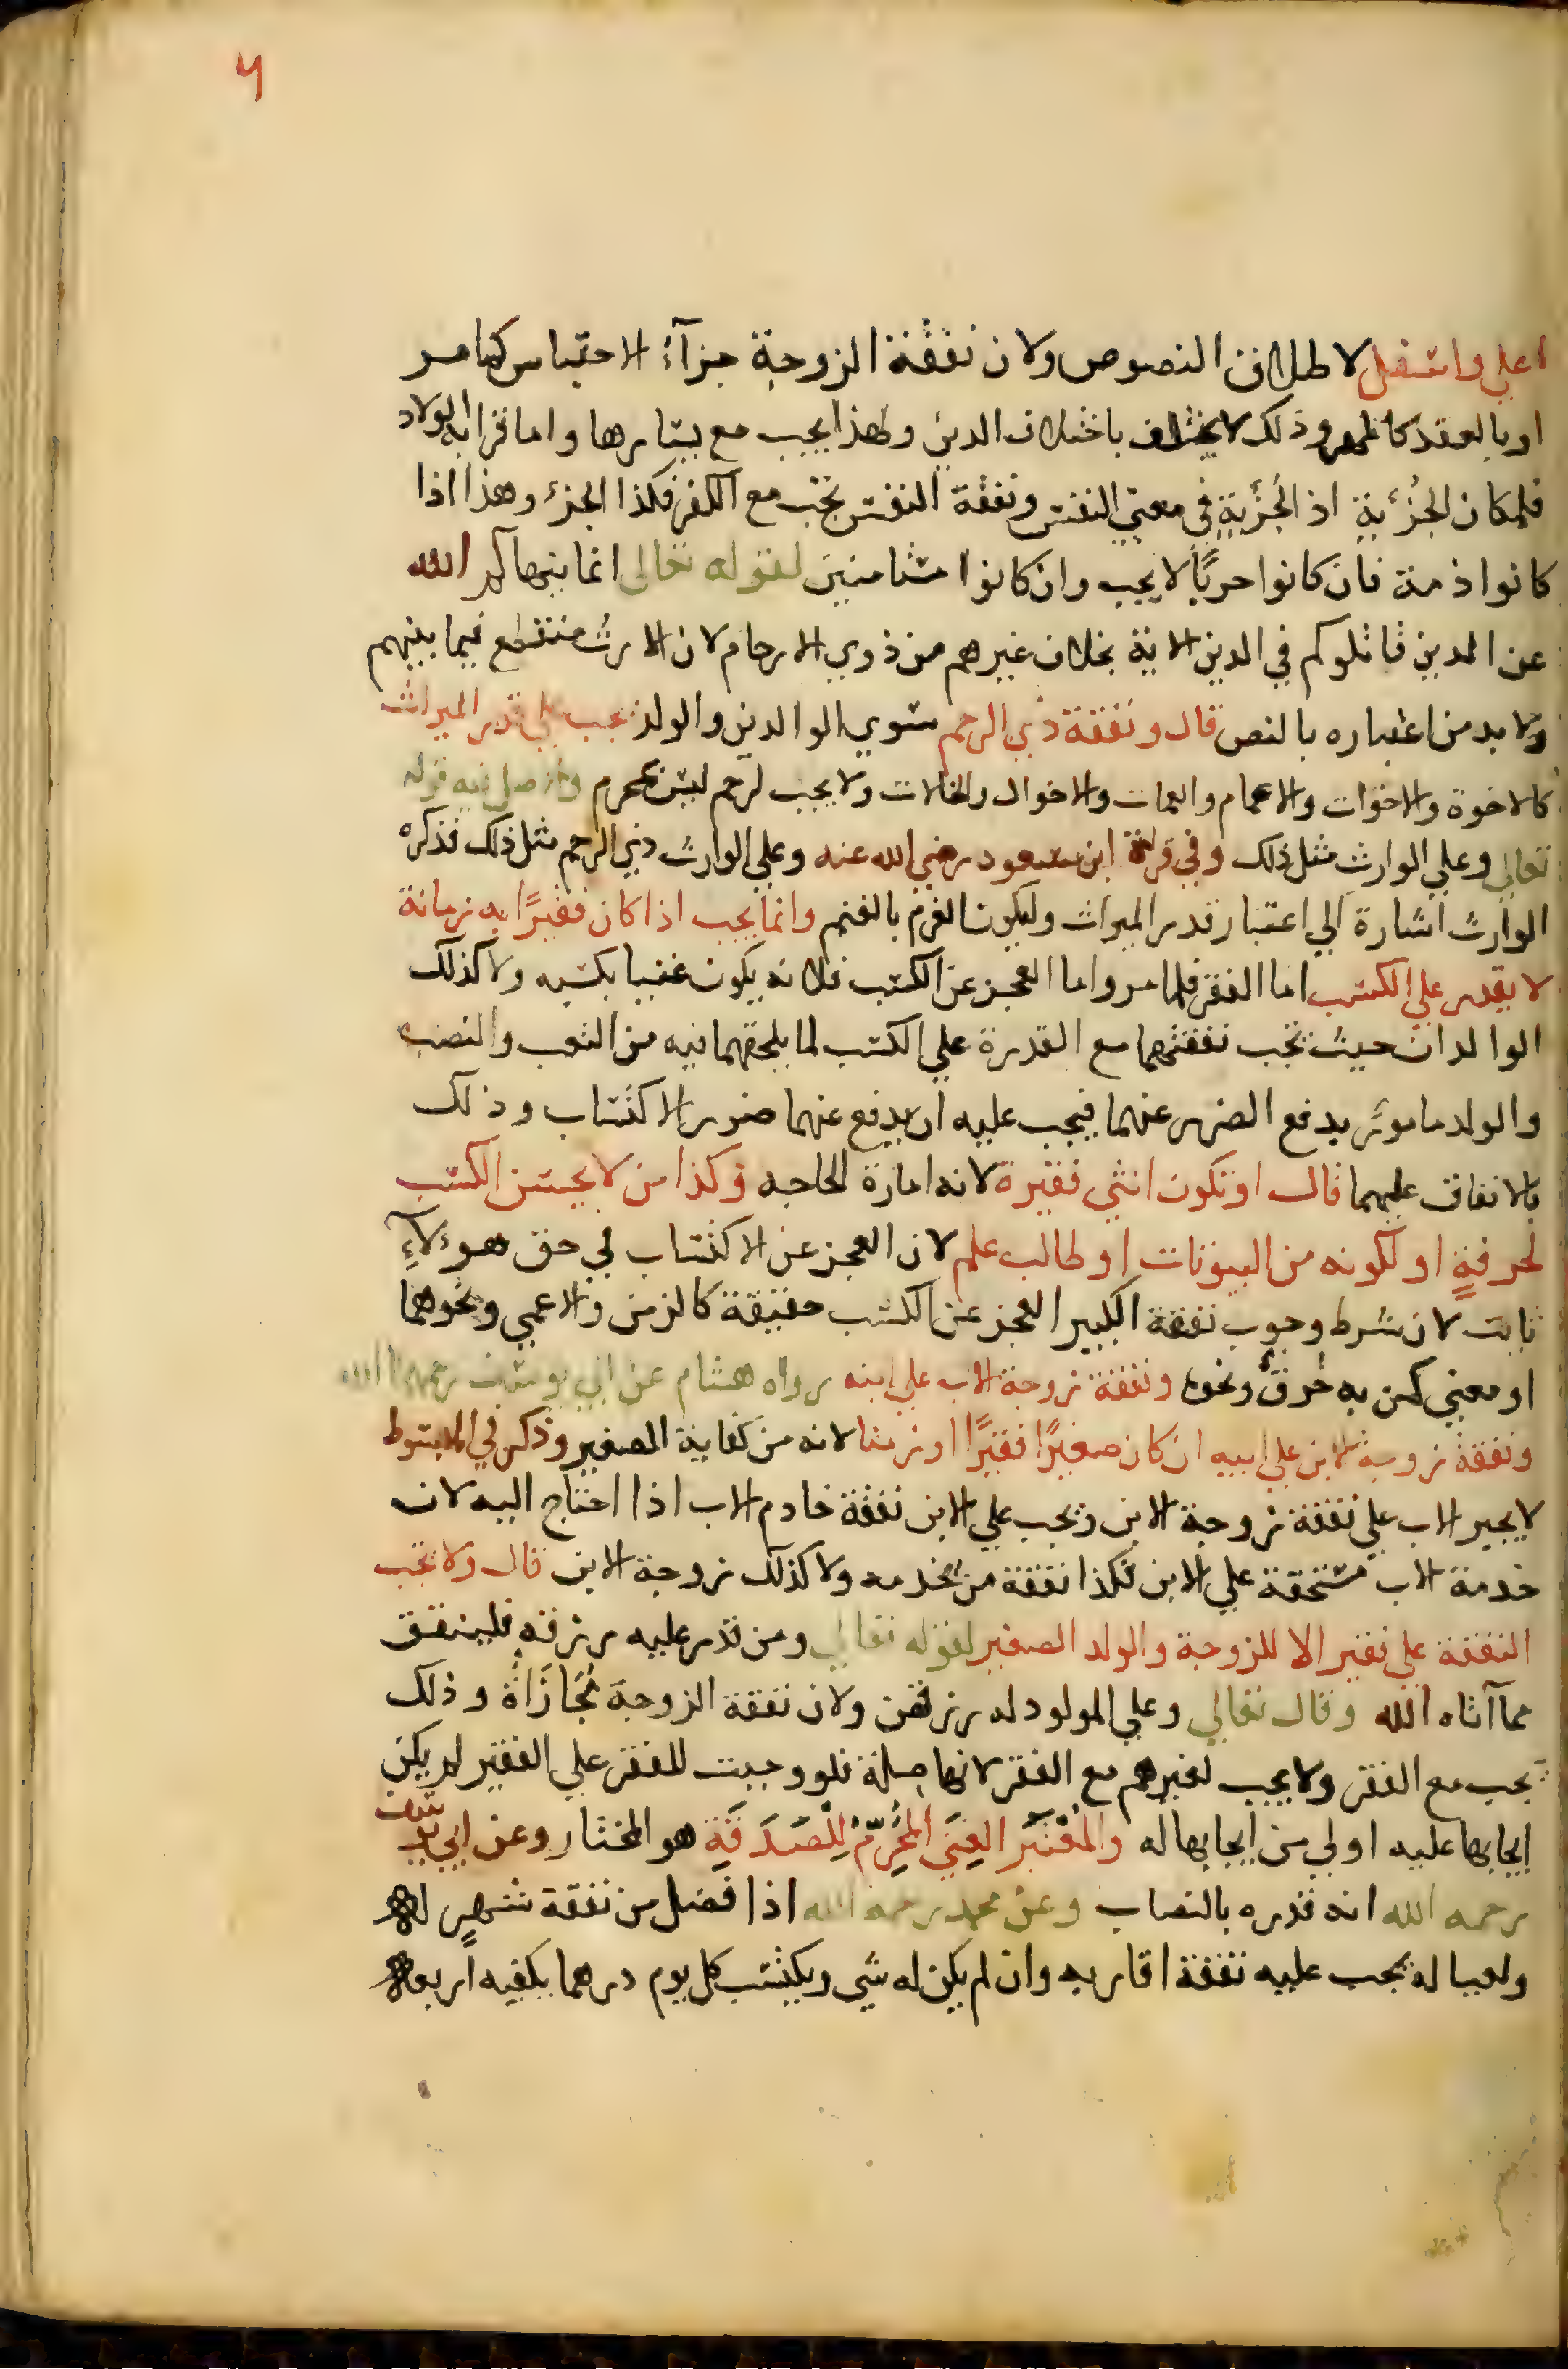 ٦
اعلي واسفل لاطلاق النصوص ولان نفقة الزوجة جزآءُ الاحتباس كما مر
او بالعقد كالمهر وذلك لا يختلف باختلاف الدين ولهذا يجب مع يسارها واما قرابه الولاد
فلمكان الجُزْئية اذ الجُزئِيةِ في معني النفس ونفقة النفس تجب مع الكفر فكذا الجزء وهذا اذا
كانوا ذمة فان كانوا حربًيا لا يجب وان كانوا مستامنين لقوله تعالى انما ينهاكم الله
عن الذين قاتلوكم في الدين الاية بخلاف غيرهم من ذوي الارحام لان الارث منقطع فيما بينهم
ولا بد من اعتباره بالنص قال ونفقة ذي الرحم سوي الوالدين والولد تجب علي قدر الميراث
كالاخوة والاخوات والاعمام والعمات والاخوال والخالات ولا يجب لرحم ليس بمحرم والاصل فيه قوله
تعالي وعلي الوارث مثل ذلك وفي قراة ابن مسعود رضي الله عنه وعلي الوارث ذي الرحم مثل ذلك فذكره
الوارث اشارة الي اعتبار قدر الميراث وليكون الغرم بالغنم وانما يجب اذا كان فقيرًا به زمانة
لا يقدر علي الكسب اما الفقر فلما مر واما العجز عن الكسب فلانه يكون غنيا بكسبه ولا كذلك
الوالدان حيث تجب نفقتهما مع القدرة علي الكسب لما يلحقهما فيه من التعب والنصب
والولد مامور بدفع الضرر عنهما فيجب عليه ان يدفع عنهما ضرر الاكتساب وذلك
بالانفاق عليهما قال او تكون انثي فقيرة لانه امارة الحاجه وكذا من لا يحسن الكسب
لحرفةٍ او لكونه من البيوتات او طالب علم لان العجز عن الاكتساب في حق هوءلآءِ
ثابت لان شرط وجوب نفقة الكبير العجز عن الكسب حقيقة كالزمن والاعمي ونحوهما
او معني كمن به خُرقٌ ونحوه ونفقة زوجة الاب علي ابنه رواه هشام عن ابي يوسف رحمهما الله
ونفقة زوجة الابن علي ابيه ان كان صغيرًا فقيرًا او زمنا لانه من كفاية الصغير وذكر في المبسوط
لا يجبر الاب علي نفقة زوجة الابن وتجب علي الابن نفقة خادم الاب اذا احتاج اليه لان
خدمة الاب مستحقة علي الابن فكذا نفقة من يخدمه ولا كذلك زوجة الابن قال ولا تجب
النفقة علي فقير الا للزوجة والولد الصغير لقوله تعالي ومن قدر عليه رزقه فلينفق
مما آتاه الله وقال تعالي وعلي المولود له رزقهن ولان نفقة الزوجة مُجَازَاةٌ وذلك
يجب مع الفقر ولا يجب لغيرهم مع الفقر لانها صلة فلو وجبت للفقر علي الفقير لم يكن
ايجابها عليه اولي من ايجابها له والمُعْتَبَر الغِنَي المُحَرِّمُ لِلْصَدَقَةِ هو المختار وعن ابي يوسف
رحمه الله انه قدره بالنصاب وعن محمد رحمه الله اذا فضل من نفقة شهرٍ له
ولعياله يجب عليه نفقة اقاربه وان لم يكن له شي ويكتسب كل يوم درهما يكفيه اربعة